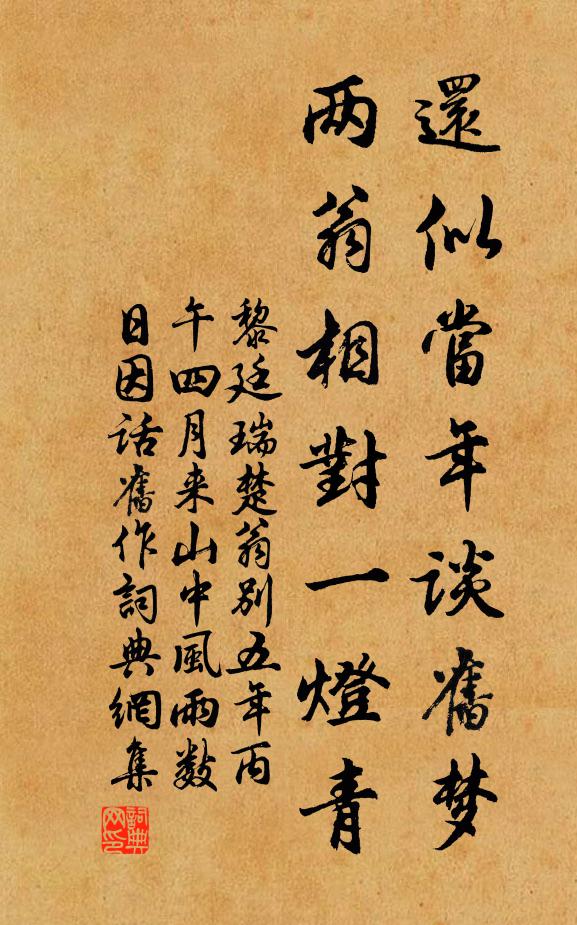 還似當年谈舊梦
两翁相對一燈青
黎廷瑞楚翁别五年丙
午四月来山中風雨数
日因话舊作詞典網集
詞典
网印